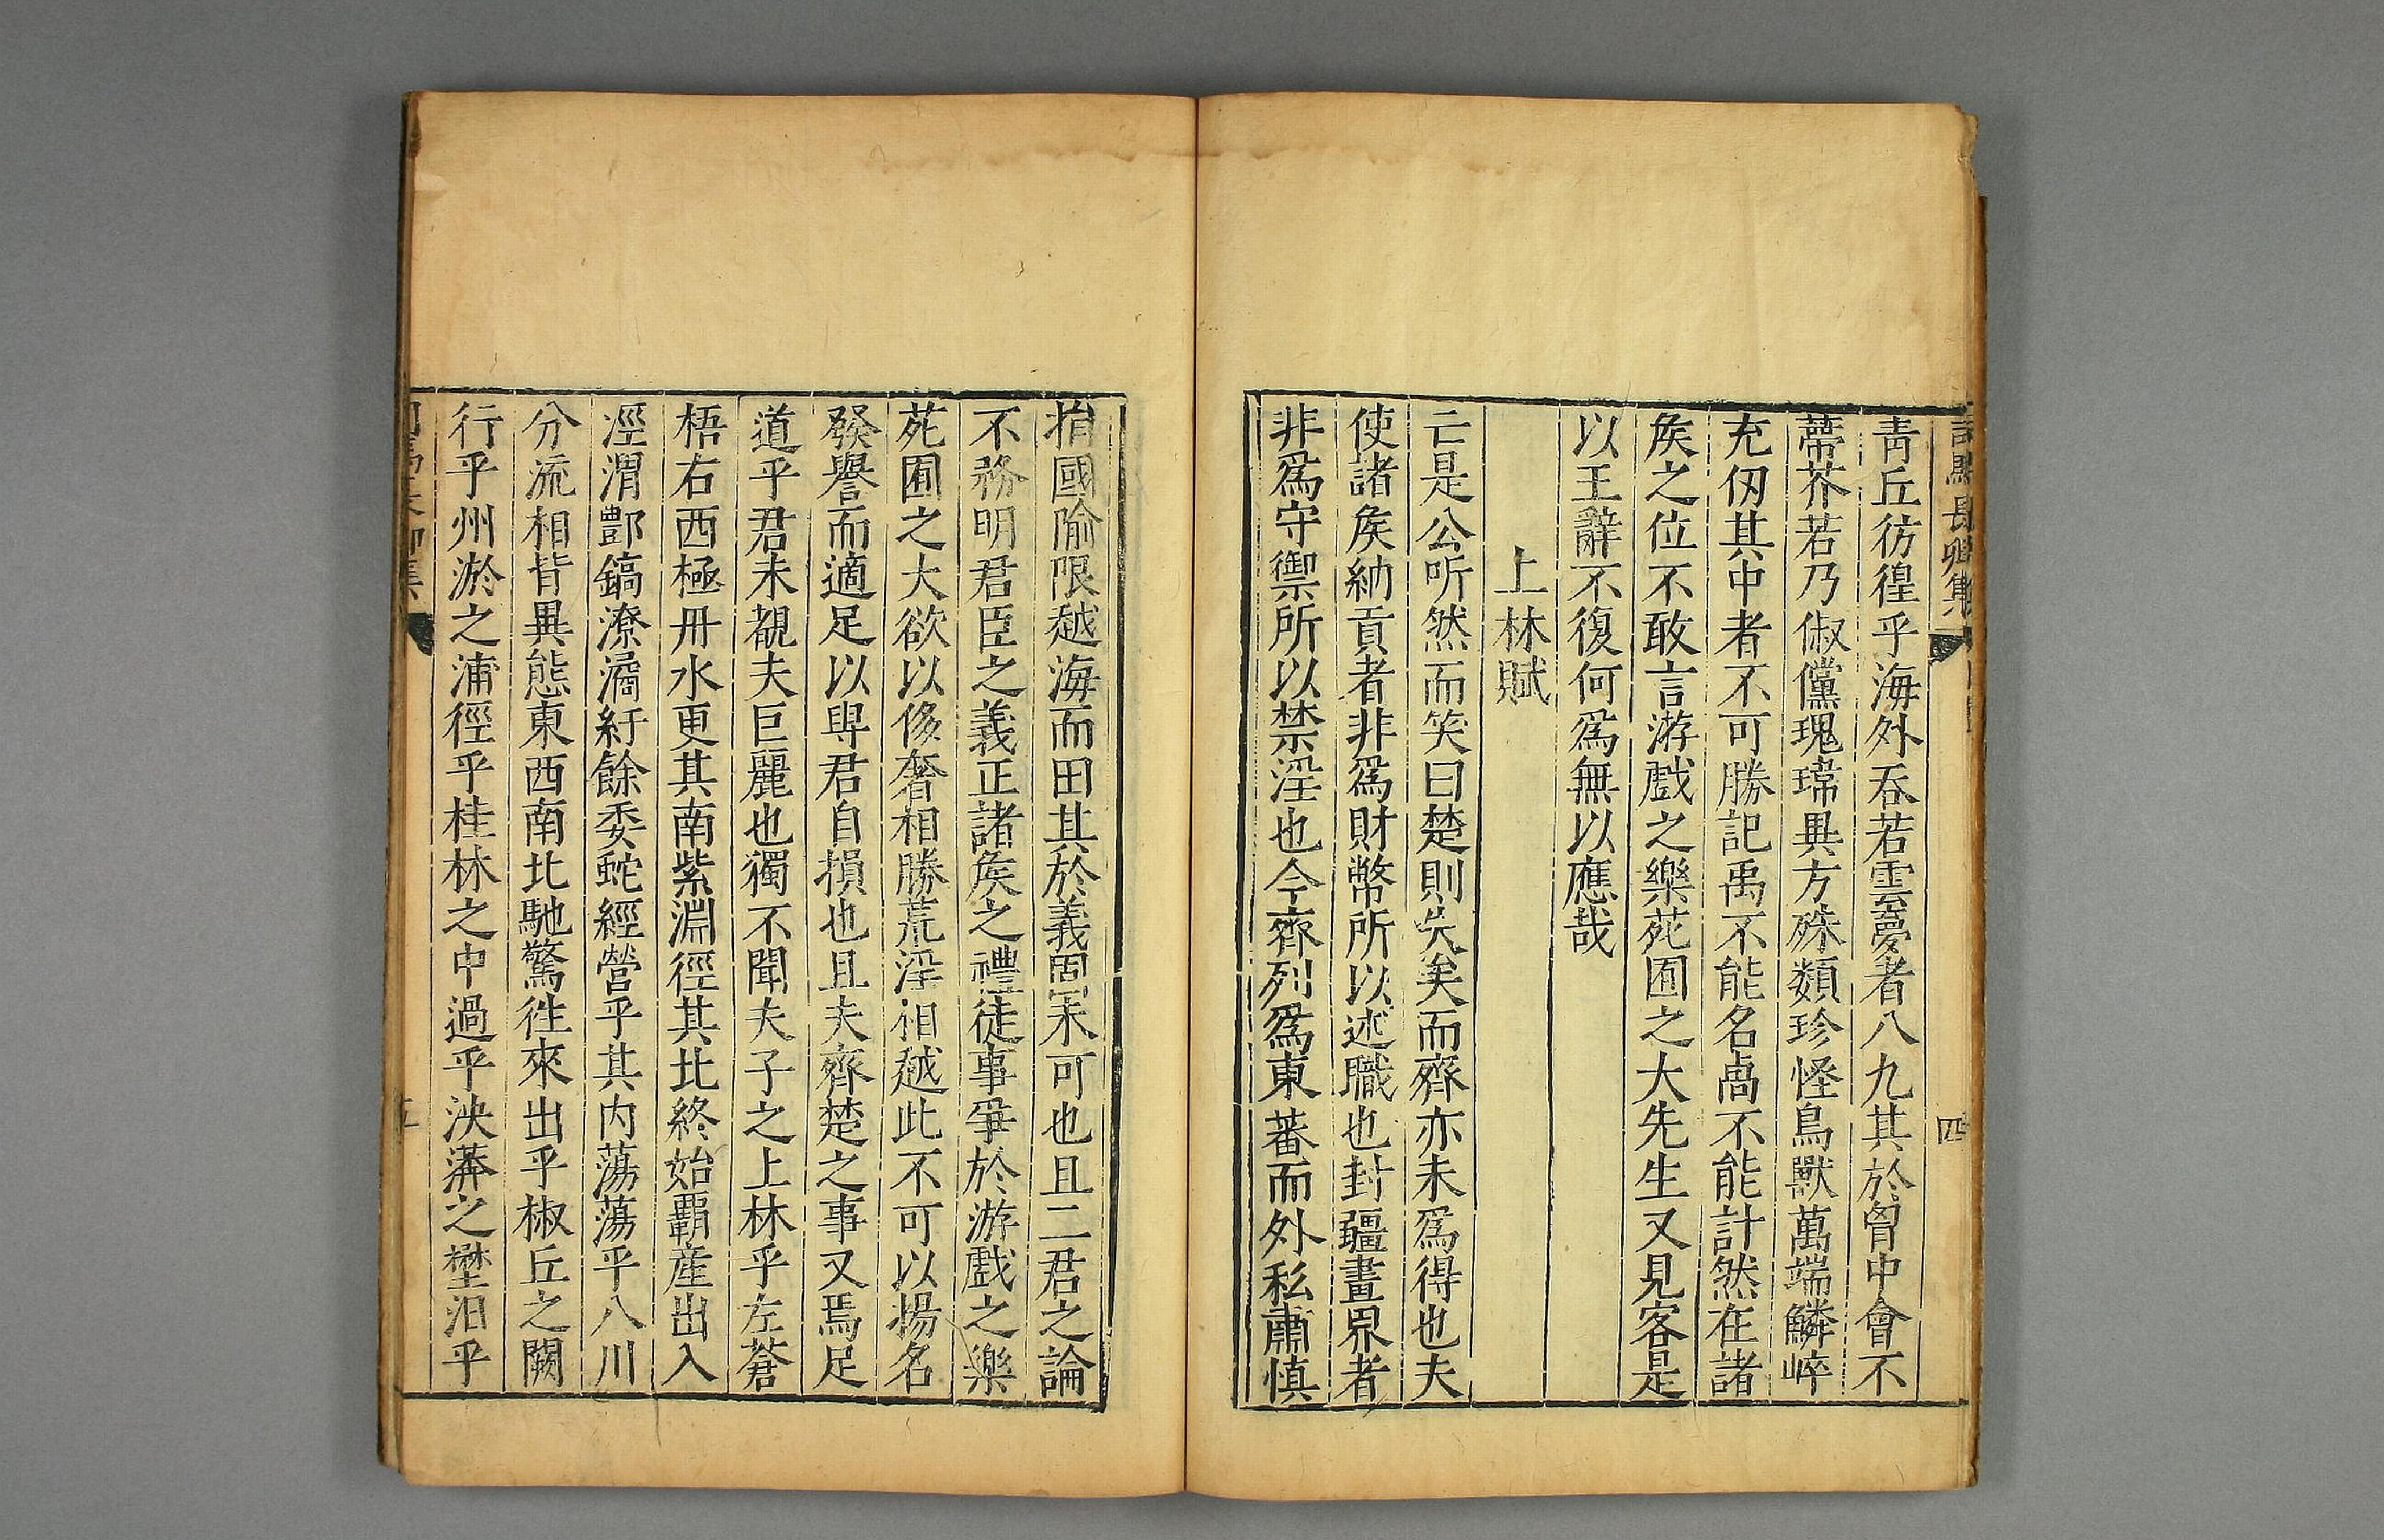 司馬長卿集
四
青丘彷徨乎海外吞若雲夢者八九其於胷中會不
蔕芥若乃俶儻瑰瑋異方殊類珍怪鳥獸萬端鱗崪
充仞其中者不可勝記禹不能名卨不能計然在諸
矦之位不敢言游戲之樂苑囿之大先生又見客是
以王辭不復何爲無以應哉
上林賦
亡是公听然而笑曰楚則失矣而齊亦未爲得也夫
使諸矦納貢者非爲財幣所以述職也封疆畫界者
非爲守禦所以禁淫也今齊列爲東蕃而外私肅慎
捐國隃限越海而田其於義固未可也且二君之論
不務明君臣之義正諸矦之禮徒事爭於游戲之樂
苑囿之大欲以侈奢相勝荒淫相越此不可以揚名
發譽而適足以㝵君自損也且夫齊楚之事又焉足
道乎君未覩夫巨麗也獨不聞夫子之上林乎左蒼
梧右西極丹水更其南紫淵徑其北終始覇產出入
涇渭酆鎬潦潏紆餘委蛇經營乎其內蕩蕩乎八川
分流相背異態東西南北馳騖徃來出乎椒丘之闕
行乎州淤之浦徑乎桂林之中過乎泱漭之壄汨乎
司馬長卿集
五